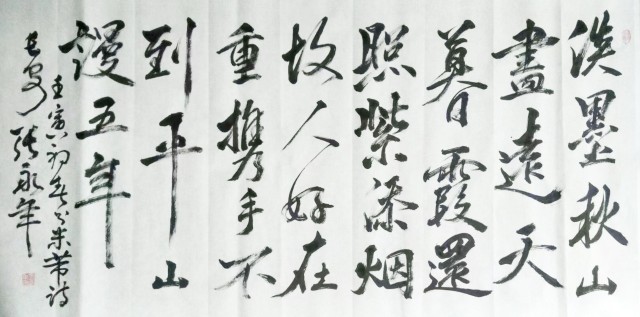 淡墨秋山
畫遠天
暮霞還
照紫添烟
故人好在
重携手不
到平山
謾五年
壬寅初书米芾诗
长安张永年